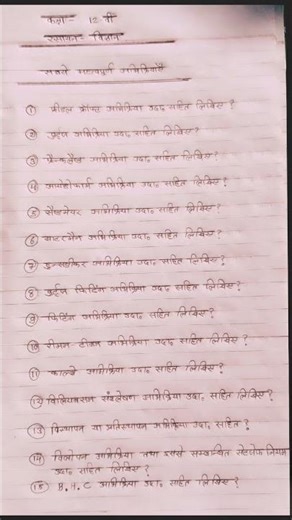 कक्षा - 12 वीं
रसायन - विज्ञान
सबसे महत्वपूर्ण अभिक्रियाएँ
① फ्रीडल क्राफ्ट अभिक्रिया उदा० सहित लिखिए ?
② वुर्ट्ज अभिक्रिया उदा० सहित लिखिए ?
③ अभिक्रिया उदा० सहित लिखिए ?
④ आयोडोफार्म अभिक्रिया उदा० सहित लिखिए ?
⑤ सैण्डमेयर अभिक्रिया उदा० सहित लिखिए ?
⑥ अभिक्रिया उदा० सहित लिखिए ?
⑦ अभिक्रिया उदा० सहित लिखिए ?
⑧ वुर्ट्ज फिटिग अभिक्रिया उदा० सहित लिखिए ?
⑨ फिटिग अभिक्रिया उदा० सहित लिखिए ?
⑩ रीमर - टीमन अभिक्रिया उदा० सहित लिखिए ?
⑪ कोल्बे अभिक्रिया उदा० सहित लिखिए ?
⑫ विलियमसन संश्लेषण अभिक्रिया उदा० सहित लिखिए ?
⑬ या प्रतिस्थापन अभिक्रिया उदा० सहित लिखिए ?
⑭ विलोपन अभिक्रिया तथा इससे सम्बन्धित सेटजेफ नियम
उदा० सहित लिखिए ?
⑮ B.H.C अभिक्रिया उदा० सहित लिखिए ?